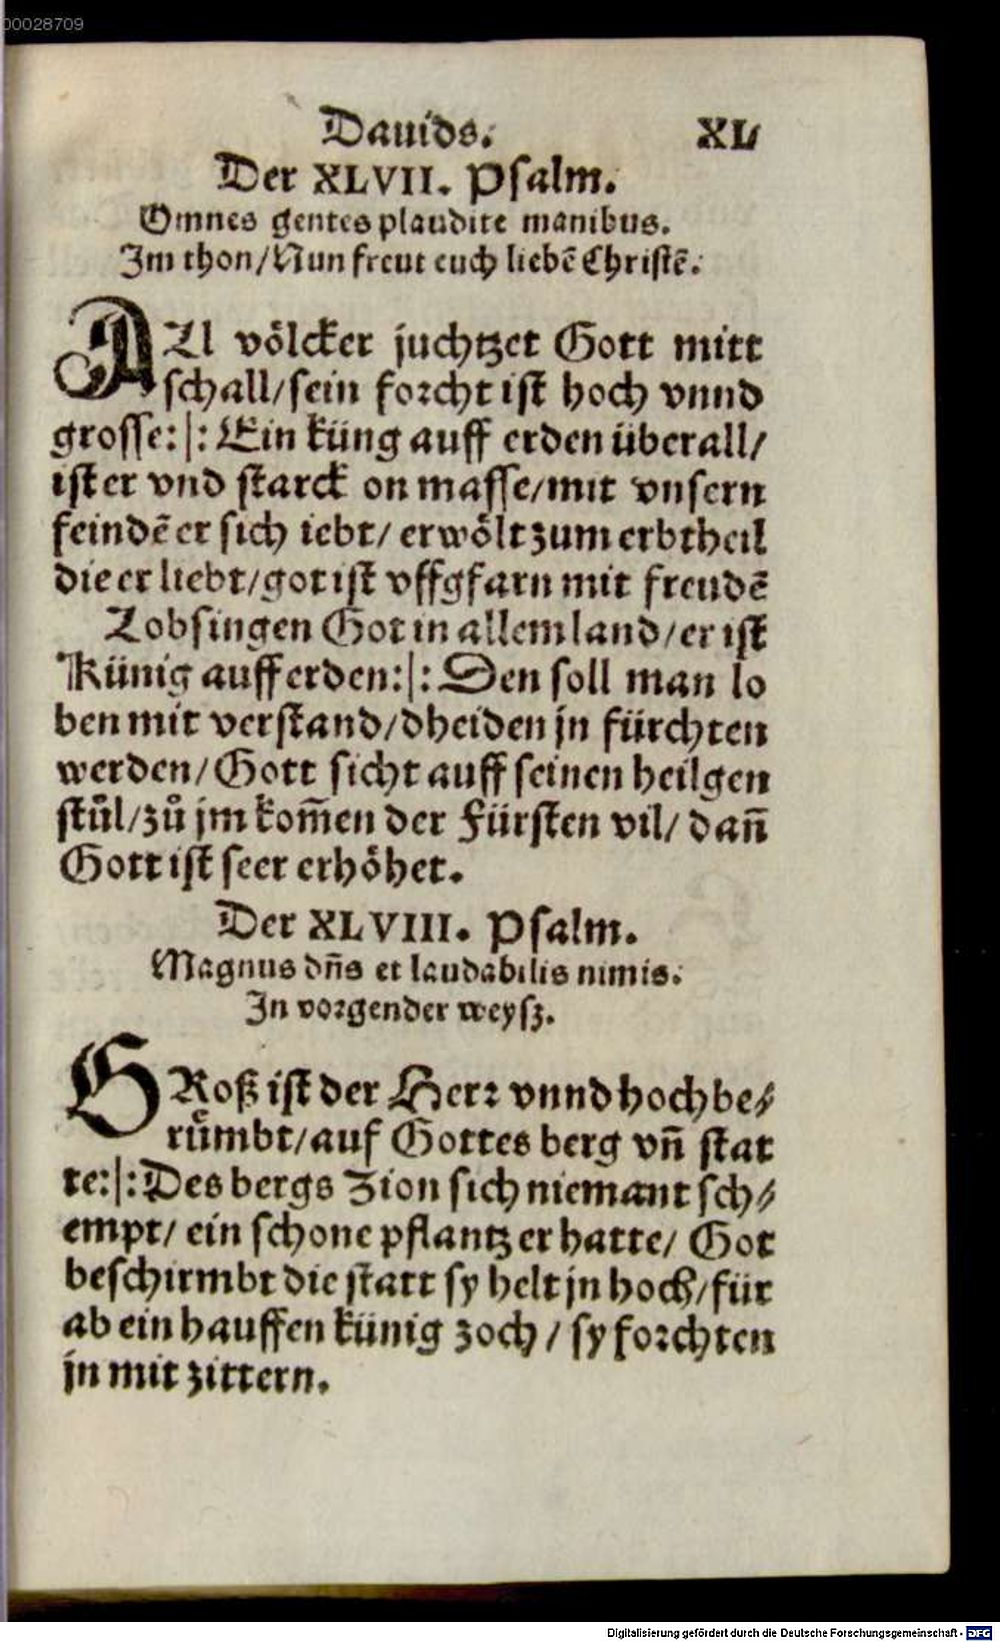 00028709
Dauids. XL
Der XLVII. Psalm.
Omnes gentes plaudite manibus.
Im thon/Nun freut euch liebē Christē.
ALl völcker juchtzet Gott mitt
schall/sein forcht ist hoch vnnd
grosse:|: Ein küng auff erden überall/
ist er vnd starck on masse/mit vnsern
feindē er sich iebt/ erwölt zum erbtheil
die er liebt/got ist vffgfarn mit freudē
Lobsingen Got in allem land/er ist
Künig auff erden:|: Den soll man lo
ben mit verstand/dheiden jn fürchten
werden/Gott sicht auff seinen heilgen
stůl/zů jm kom̄en der Fürsten vil/ dan̄
Gott ist seer erhöhet.
Der XLVIII. Psalm.
Magnus dn̄s et laudabilis nimis.
In vorgender weysz.
GRoß ist der Herr vnnd hochbe⸗
rümbt/auf Gottes berg vn̄ stat
te:|: Des bergs Zion sich niemant sch⸗
empt/ ein schone pflantz er hatte/ Got
beschirmbt die statt sy helt jn hoch/für
ab ein hauffen künig zoch / sy forchten
jn mit zittern.
Digitalisierung gefördert durch die Deutsche Forschungsgemeinschaft - DFG